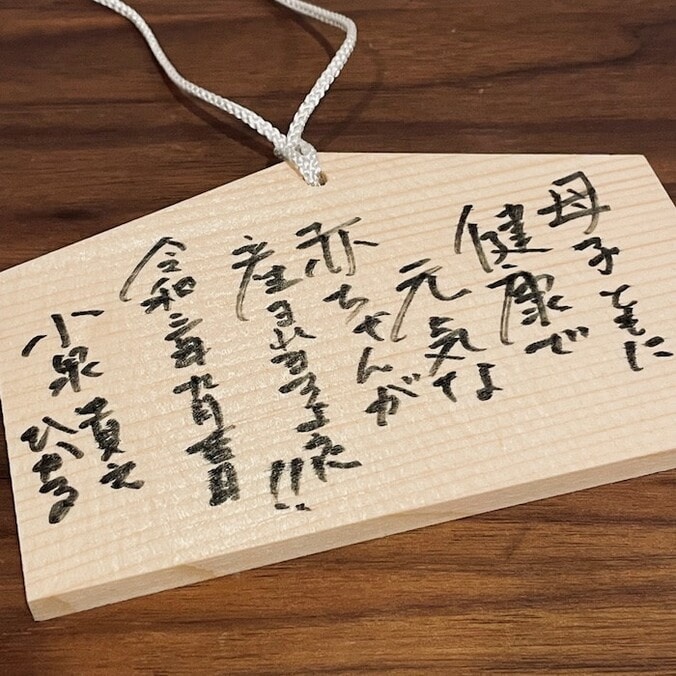 母子ともに
健康で
元気な
赤ちゃんが
産まれますように!!
令和三年 月吉日
小泉 貴之
ひかる